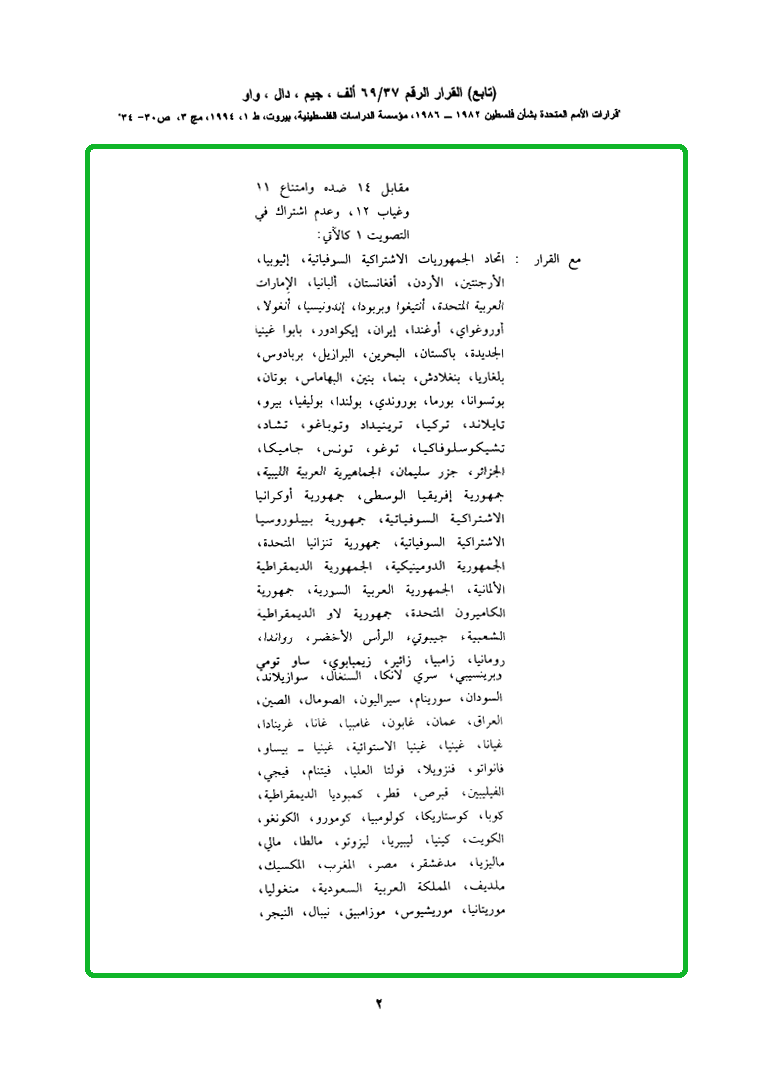 (تابع) القرار الرقم ٦٩/٣٧ ألف ، جيم ، دال ، واو
"قرارات الأمم المتحدة بشأن فلسطين ١٩٨٢ ــ ١٩٨٦، مؤسسة الدراسات الفلسطينية، بيروت، ط ١، ١٩٩٤، مج ٣، ص٣٠- ٣٤"
مقابل ١٤ ضده وامتناع ١١
وغياب ١٢، وعدم اشتراك في
التصويت ١ كالآتي:
مع القرار : اتحاد الجمهوريات الاشتراكية السوفياتية، إثيوبيا،
الأرجنتين، الأردن، أفغانستان، ألبانيا، الإمارات
العربية المتحدة، أنتيغوا وبربودا، إندونيسيا، أنغولا،
أوروغواي، أوغندا، إيران، إيكوادور، بابوا غينيا
الجديدة، باكستان، البحرين، البرازيل، بربادوس،
بلغاريا، بنغلادش، بنما، بنين، البهاماس، بوتان،
بوتسوانا، بورما، بوروندي، بولندا، بوليفيا، بيرو،
تايلاند، تركيا، ترينيداد وتوباغو، تشاد،
تشيكوسلوفاكيا، توغو، تونس، جاميكا،
الجزائر، جزر سليمان، الجماهيرية العربية الليبية،
جمهورية إفريقيا الوسطى، جمهورية أوكرانيا
الاشتراكية السوفياتية، جمهورية بييلوروسيا
الاشتراكية السوفياتية، جمهورية تنزانيا المتحدة،
الجمهورية الدومينيكية، الجمهورية الديمقراطية
الألمانية، الجمهورية العربية السورية، جمهورية
الكاميرون المتحدة، جمهورية لاو الديمقراطية
الشعبية، جيبوتي، الرأس الأخضر، رواندا،
رومانيا، زامبيا، زائير، زيمبابوي، ساو تومي
وبرينسيبي، سري لانكا، السنغال، سوازيلاند،
السودان، سورينام، سيراليون، الصومال، الصين،
العراق، عمان، غابون، غامبيا، غانا، غرينادا،
غيانا، غينيا، غينيا الاستوائية، غينيا ــ بيساو،
فانواتو، فنزويلا، فولتا العليا، فيتنام، فيجي،
الفيليبين، قبرص، قطر، كمبوديا الديمقراطية،
كوبا، كوستاريكا، كولومبيا، كومورو، الكونغو،
الكويت، كينيا، ليبيريا، ليزوتو، مالطا، مالي،
ماليزيا، مدغشقر، مصر، المغرب، المكسيك،
ملديف، المملكة العربية السعودية، منغوليا،
موريتانيا، موريشيوس، موزامبيق، نيبال، النيجر،
٢